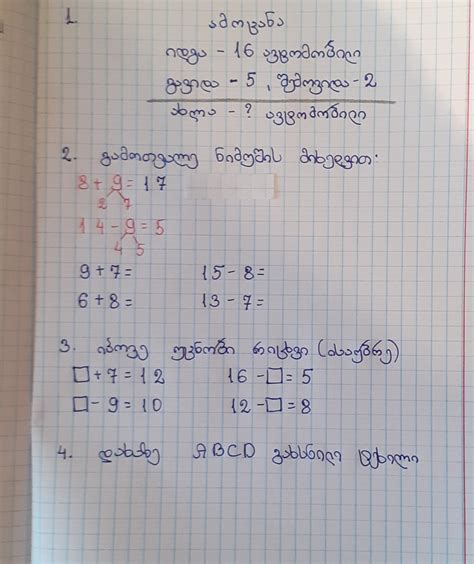 1. ამოცანა
იდგა - 16 ავტომობილი
გავიდა - 5, შემოვიდა - 2
ახლა - ? ავტომობილი
2. გამოთვალე ნიმუშის მიხედვით:
8 + 9 = 17
2 7
14 - 9 = 5
4 5
9 + 7 = 15 - 8 =
6 + 8 = 13 - 7 =
3. იპოვე უცნობი რიცხვი (ასაკრე)
□ + 7 = 12 16 - □ = 5
□ - 9 = 10 12 - □ = 8
4. დახაზე ABCD გახსნილი ტეხილი